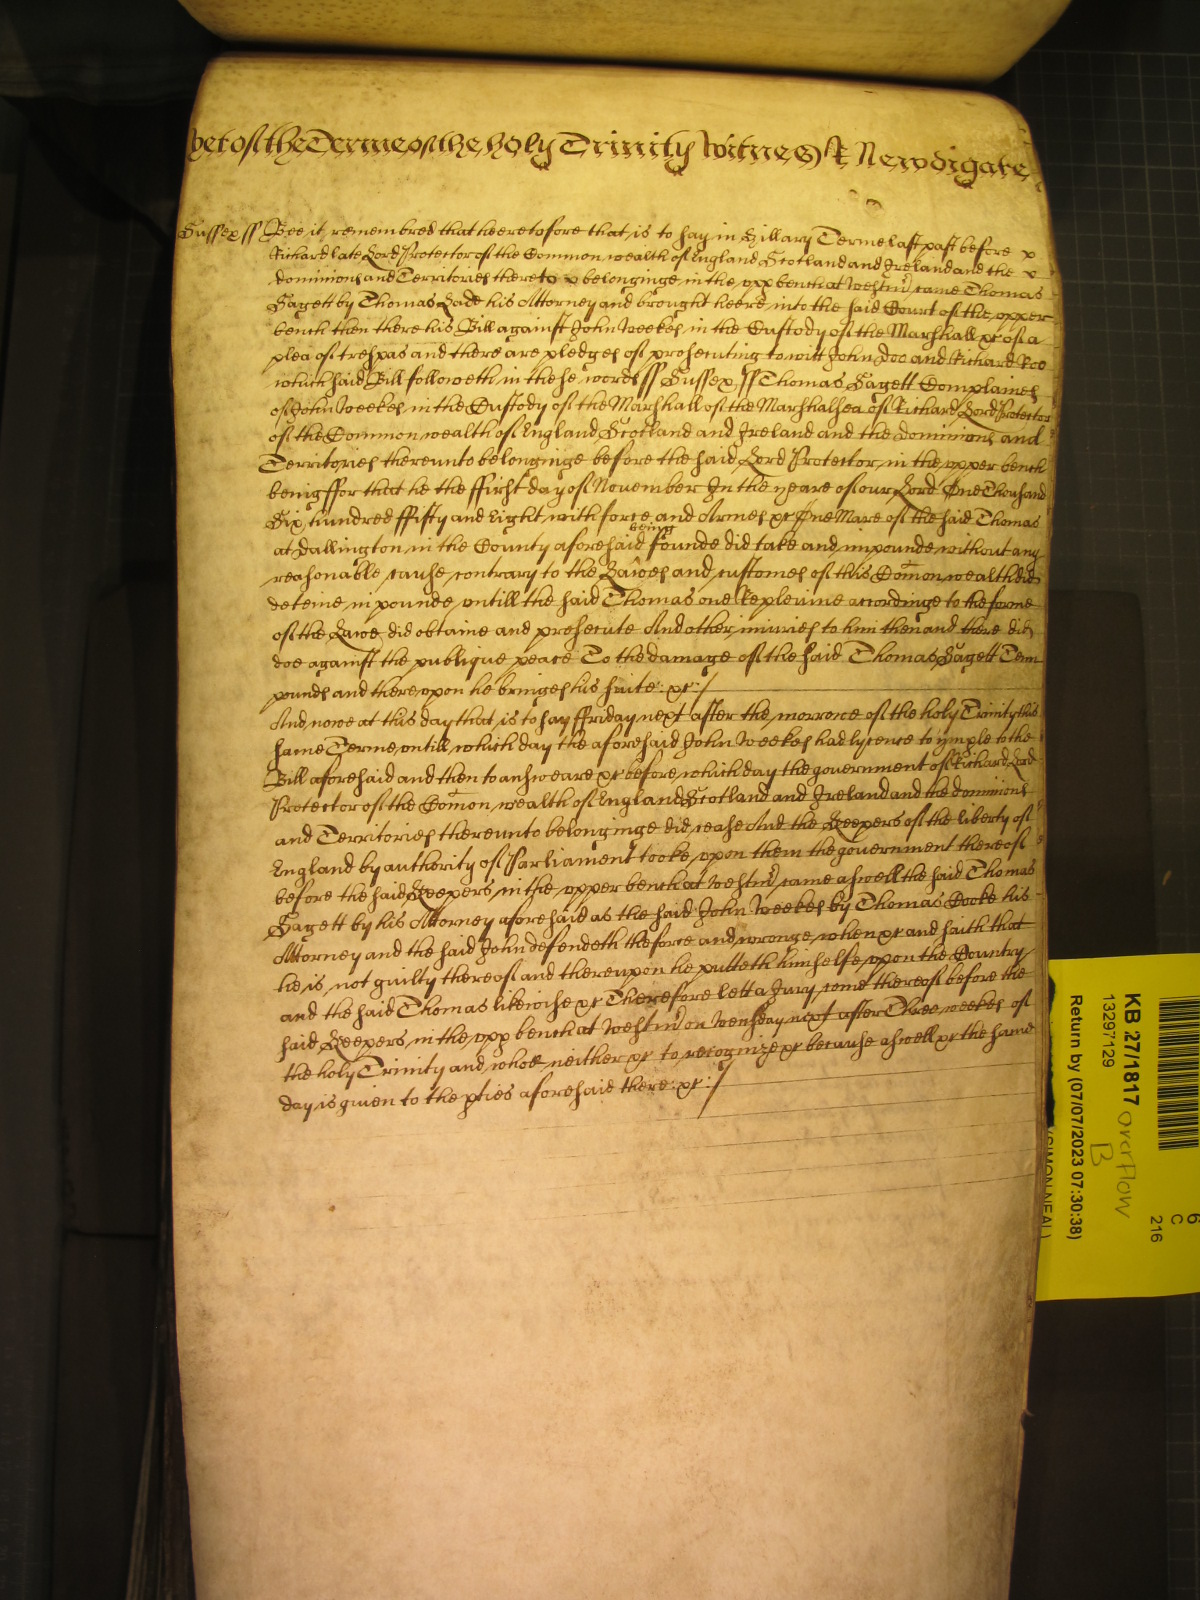 yet of the Terme of the holy Trinity Witnes R Newdigate
Sussex ss Bee it remembred that heeretofore that is to say in Hillary Terme last past before
Richard late Lord Protector of the Common wealth of England Scotland and Ireland and the
dominions and Territories thereto belonginge in the upp bench at Westmr came Thomas
Sagett by Thomas Lade his Attorney and brought heere into the said Court of the upper
bench then there his Bill against John Weekes in the Custody of the Marshall &c of a
plea of trespas and there are pledges of prosecuting to witt John Doe and Richard Roe
which said Bill followeth in these words ss Sussex ss Thomas Sagett Complaines
of John Weekes in the Custody of the Marshall of the Marshalsea of Richard Lord Protector
of the Common wealth of England Scotland and Ireland and the dominions and
Territories thereunto belonginge before the said Lord Protector in the upper bench
being ffor that he the ffirst day of November In the yeare of our Lord One Thousand
Six hundred ffifty and Eight with force and Armes &c One Mare of the said Thomas
at Dallington in the County aforesaid being founde did take and impounde without any
reasonable cause contrary to the Lawes and customes of this Comon wealth did
deteine in pounde untill the said Thomas one Replevine accordinge to the forme
of the Lawe did obtaine and prosecute And other iniuries to him then and there did
doe against the publique peace To the damage of the said Thomas Sagett Tenn
pounds and thereupon he bringes his suite &c
And nowe at this day that is to say ffriday next after the morrowe of the holy Trinity this
same Terme untill which day the aforesaid John Weekes had lycence to imple to the
Bill aforesaid and then to answeare &c before which day the government of Richard Lord
Protector of the Comon wealth of England Scotland and Ireland and the dominions
and Territories thereunto belonginge did cease And the Keepers of the liberty of
England by authority of Parliament tooke upon them the government thereof
before the said Keepers in the upper bench at Westmr came aswell the said Thomas
Sagett by his Attorney aforesaid as the said John Weekes by Thomas Cooke his
Attorney and the said John defendeth the force and wronge when &c and saith that
he is not guilty thereof and thereupon he putteth himselfe upon the Country
and the said Thomas likewise &c Therefore lett a Jury come thereof before the
said Keepers in the upp bench at Westmr on Wensday next after Three weekes of
the holy Trinity and whoe neither &c to recognize &c because aswell &c the same
day is given to the pties aforesaid there &c
KB 27/1817
13297129
Return by (07/07/2023 07:30:38)
overflow
B
6
C
216
(SIMON NEAL)